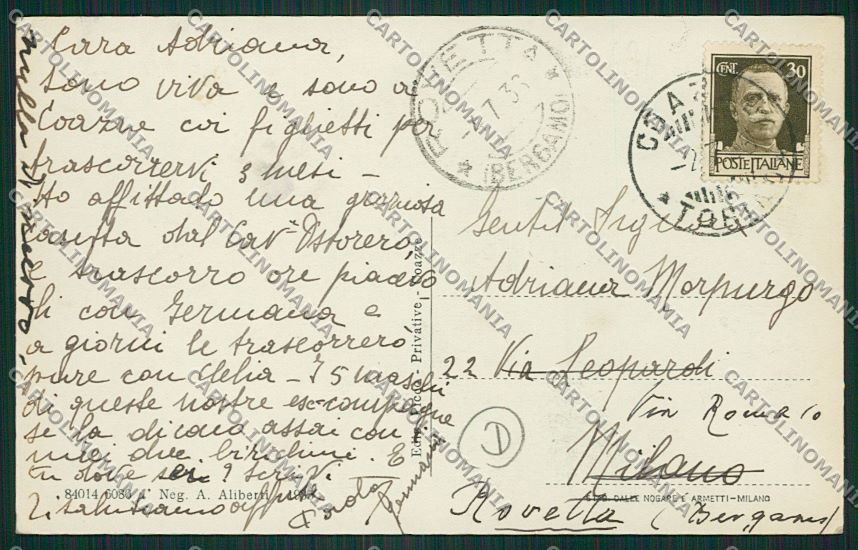 Cara Adriana,
Sono viva e sono a
Coazze coi figlietti per
trascorrervi 3 mesi -
Ho affittado una graziosa
casetta dal Cav. Ostorero
e trascorro ore piacevo
li con Germana e
a giorni le trascorrerò
pure con Clelia - I 5 maschi
di queste nostre ex-compagne
se la dicono assai con i
miei due birichini. E
tu dove sei? Scrivi
Ti salutiamo
Paola
Germana
nulla di
84014 6086 Neg. A. Aliberti
Ediz. Picco - Privative - Coazze
ROVETTA
(BERGAMO)
CENT. 30
POSTE ITALIANE
COAZZE
Gentil Sig.
Adriana Morpurgo
22 Via Leopardi
Via Roma 10
Milano
STAB. DALLE NOGARE E ARMETTI-MILANO
Rovetta (Bergamo)
CARTOLINOMANIA